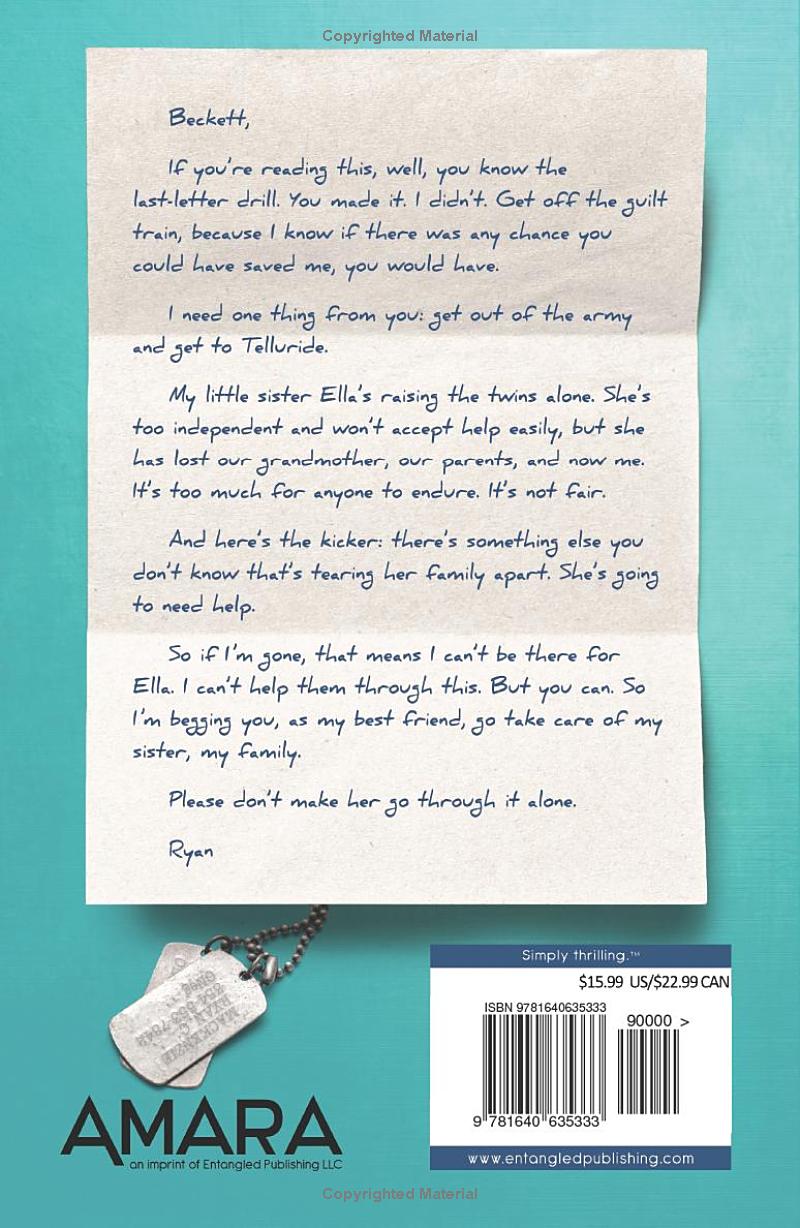 Copyrighted Material
Beckett,
If you're reading this, well, you know the
last-letter drill. You made it. I didn't. Get off the guilt
train, because I know if there was any chance you
could have saved me, you would have.
I need one thing from you: get out of the army
and get to Telluride.
My little sister Ella's raising the twins alone. She's
too independent and won't accept help easily, but she
has lost our grandmother, our parents, and now me.
It's too much for anyone to endure. It's not fair.
And here's the kicker: there's something else you
don't know that's tearing her family apart. She's going
to need help.
So if I'm gone, that means I can't be there for
Ella. I can't help them through this. But you can. So
I'm begging you, as my best friend, go take care of my
sister, my family.
Please don't make her go through it alone.
Ryan
MACKENZIE
RYAN
AMARA
an imprint of Entangled Publishing LLC
Simply thrilling.™
$15.99 US/$22.99 CAN
ISBN 9781640635333
90000 >
9 781640 635333
www.entangledpublishing.com
Copyrighted Material